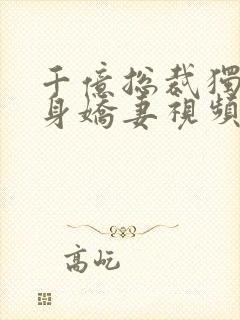 千億総裁獨
身嬌妻視頻
高屹